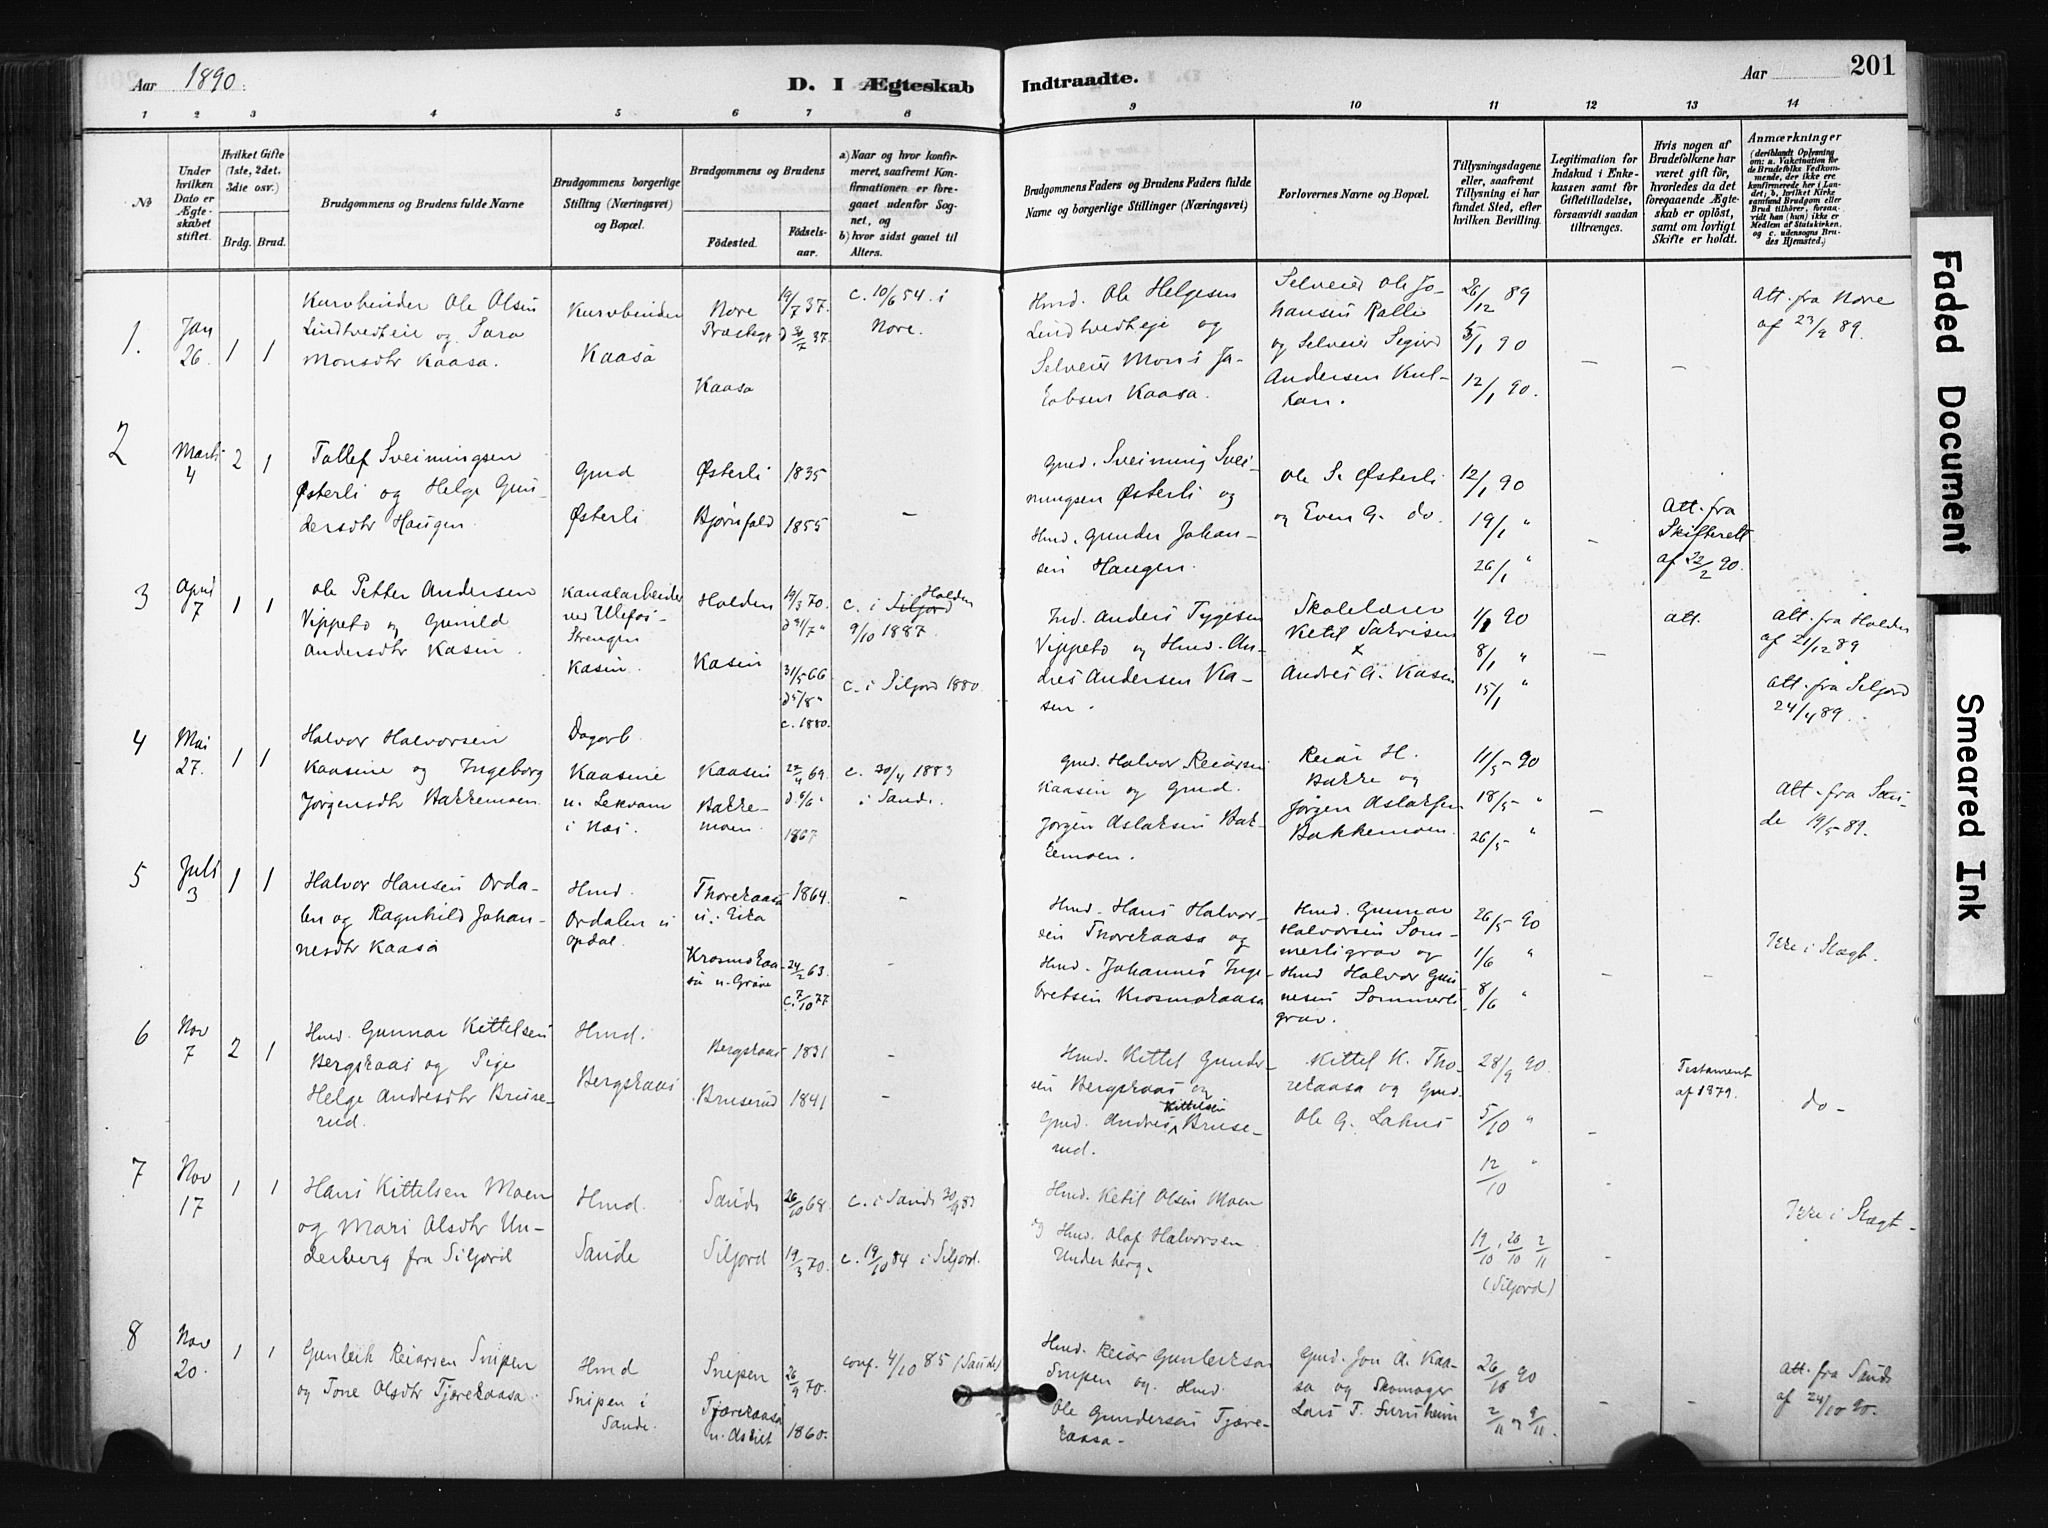 Aar 1890.
D. I Ægteskab
Indtraadte.
Aar
201
1 2 3 4 5 6 7 8 9 10 11 12 13 14
No
Under
hvilken
Dato er
Ægte-
skabet
stiftet.
Hvilket Gifte
(1ste, 2det,
3die osv.)
Brdg. Brud.
Brudgommens og Brudens fulde Navne
Brudgommens borgerlige
Stilling (Næringsvei)
og Bopæl.
Brudgommens og Brudens
Fødested.
Fødsels-
aar.
a) Naar og hvor konfir-
meret, saafremt Kon-
firmationen er fore-
gaaet udenfor Sog-
net, og
b) hvor sidst gaaet til
Alters.
Brudgommens Faders og Brudens Faders fulde
Navne og borgerlige Stillinger (Næringsvei)
Forlovernes Navne og Bopæl.
Tillysningsdagene
eller, saafremt
Tillysning ei har
fundet Sted, efter
hvilken Bevilling.
Legitimation for
Indskud i Enke-
kassen samt for
Giftetilladelse,
forsaavidt saadan
tiltrænges.
Hvis nogen af
Brudefolkene har
været gift før,
hvorledes da det
foregaaende Ægte-
skab er opløst,
samt om lovligt
Skifte er holdt.
Anmærkninger
(deriblandt Oplysning
om: a. Vakcination for
de Brudefolks Vedkom-
mende, der ikke ere
konfirmerede her i Lan-
det; b. hvilket Kirke
samfund Brudgom eller
Brud tilhører, forsaa-
vidt han (hun) ikke er
Medlem af Statskirken,
og c. udensogns Bru-
des Hjemsted.)
1.
Jan
26.
1 1
Kurvbinder Ole Olsen
Lindtvedteie og Sara
Monsdtr Kaasa.
Kurvbinder
Kaasa
Nore
Præstegj
Kaasa
19/7 37.
d 30/7 37.
c. 10/6 54. i
Nore.
Hmd. Ole Helgesen
Lindtvedteje og
Selveier Mons Ja-
kobsen Kaasa.
Selveier Ole Jo-
hansen Ralle
og Selveier Sigurd
Andersen Kul-
kan.
26/12 89
5/1 90
12/1 90.
–
–
Att. fra Nore
af 23/9 89.
2
Marts
4
2 1
Tollef Sveinungsen
Østerli og Helge Gun-
dersdtr Haugen.
Gmd
Østerli
Østerli
Bjørnfald
1835
1855
–
Gmd. Sveinung Svei-
nungsen Østerli og
Hmd. Gunder Johan-
sen Haugen.
Ole S. Østerli
og Even G. do.
12/1 90
19/1 "
26/1 "
–
Att. fra
Skifterett
af 22/2 90.
3
April
7
1 1
Ole Petter Andersen
Vippeto og Gunild
Andersdtr Kasin.
Kanalarbeider
ved Ulefos-
Strengen
Kasin.
Holden
Kasin
19/3 70.
d 31/7 "
31/5 66
d 5/8 "
c. 1880.
c. i Siljord Holden
9/10 1887.
c. i Siljord 1880.
Ind. Anders Tygesen
Vippeto og Hmd. An-
dres Andersen Ka-
sen.
Skolelærer
Ketil Sakrisen
x
Andres A. Kasin
1/1 90
8/1 "
15/1 "
–
att.
Att. fra Holden
af 21/12 89
Att. fra Siljord
24/4 89.
4
Mai
27.
1 1
Halvor Halvorsen
Kaasine og Ingeborg
Jørgensdtr Bakkemoen.
Dagarb.
Kaasine
u. Lekvam
i Næs.
Kaasin
Bakke-
moen.
22/4 69.
d. 6/6 "
1867
c. 30/4 1883
i Sande.
Gmd. Halvor Reiarsen
Kaasin og Gmd.
Jørgen Aslaksen Bak-
kemoen.
Reiar H.
Bakke og
Jørgen Aslaksen
Bakkemoen.
11/5 90
18/5 "
26/5 "
–
Att. fra San-
de 19/5 89.
5
Juli
3
1 1
Halvor Hansen Orda-
len og Ragnhild Johan-
nesdtr Kaasa
Hmd.
Ordalen u
Opdal.
Thorekaasa
u. Eika
Krosmokaa-
sa u. Grave
1864.
24/2 63.
c. 7/10 77
–
–
Hmd. Hans Halvor-
sen Thorekaasa og
Hmd. Johannes Inge-
bretsen Krosmokaasa
Hmd. Gunnar
Halvorsen Som-
merligrav og
Hmd Halvor Gun-
nesen Sommerli-
grav.
26/5 90
1/6 "
8/6 "
–
–
Ikke i Slægt.
6
Nov
7
2 1
Hmd. Gunnar Kittelsen
Bergskaas og Pige
Helge Andresdtr Bruse-
rud.
Hmd.
Bergskaas
Bergskaas
Bruserud
1831
1841
–
–
Hmd. Kittel Gunder-
sen Bergskaas og
Gmd. Andres Kittelsen Bruse-
rud.
Kittel K. Tho-
rekaasa og Gmd.
Ole G. Lahus
28/9 90.
5/10 "
12/10 "
–
Testament
af 1879.
do –
7
Nov
17
1 1
Hans Kittelsen Moen
og Mari Olsdtr Un-
derberg fra Siljord
Hmd.
Sande
Sande
Siljord
26/10 68.
19/3 70.
c. i Sande 30/9 83
c. 19/10 84 i Siljord.
Hmd. Ketil Olsen Moen
og Hmd. Olaf Halvorsen
Underberg.
19/10, 26/10 2/11
(Siljord)
–
Ikke i Slægt –
8
Nov
20.
1 1
Gunleik Reiarsen Snipen
og Tone Olsdtr Tjærekaasa.
Hmd
Snipen i
Sande.
Snipen
Tjærekaasa
u. Askilt
26/9 70.
1860.
conf. 4/10 85 (Sande)
Hmd. Reiar Gunleiksen
Snipen og Hmd.
Ole Gundersen Tjære-
kaasa.
Gmd. Jon A. Kaa-
sa og Skomager
Lars T. Furuheim
26/10 90
2/11 og 9/11
–
–
Att. fra Sande
af 24/10 90.
Faded Document
Smeared Ink